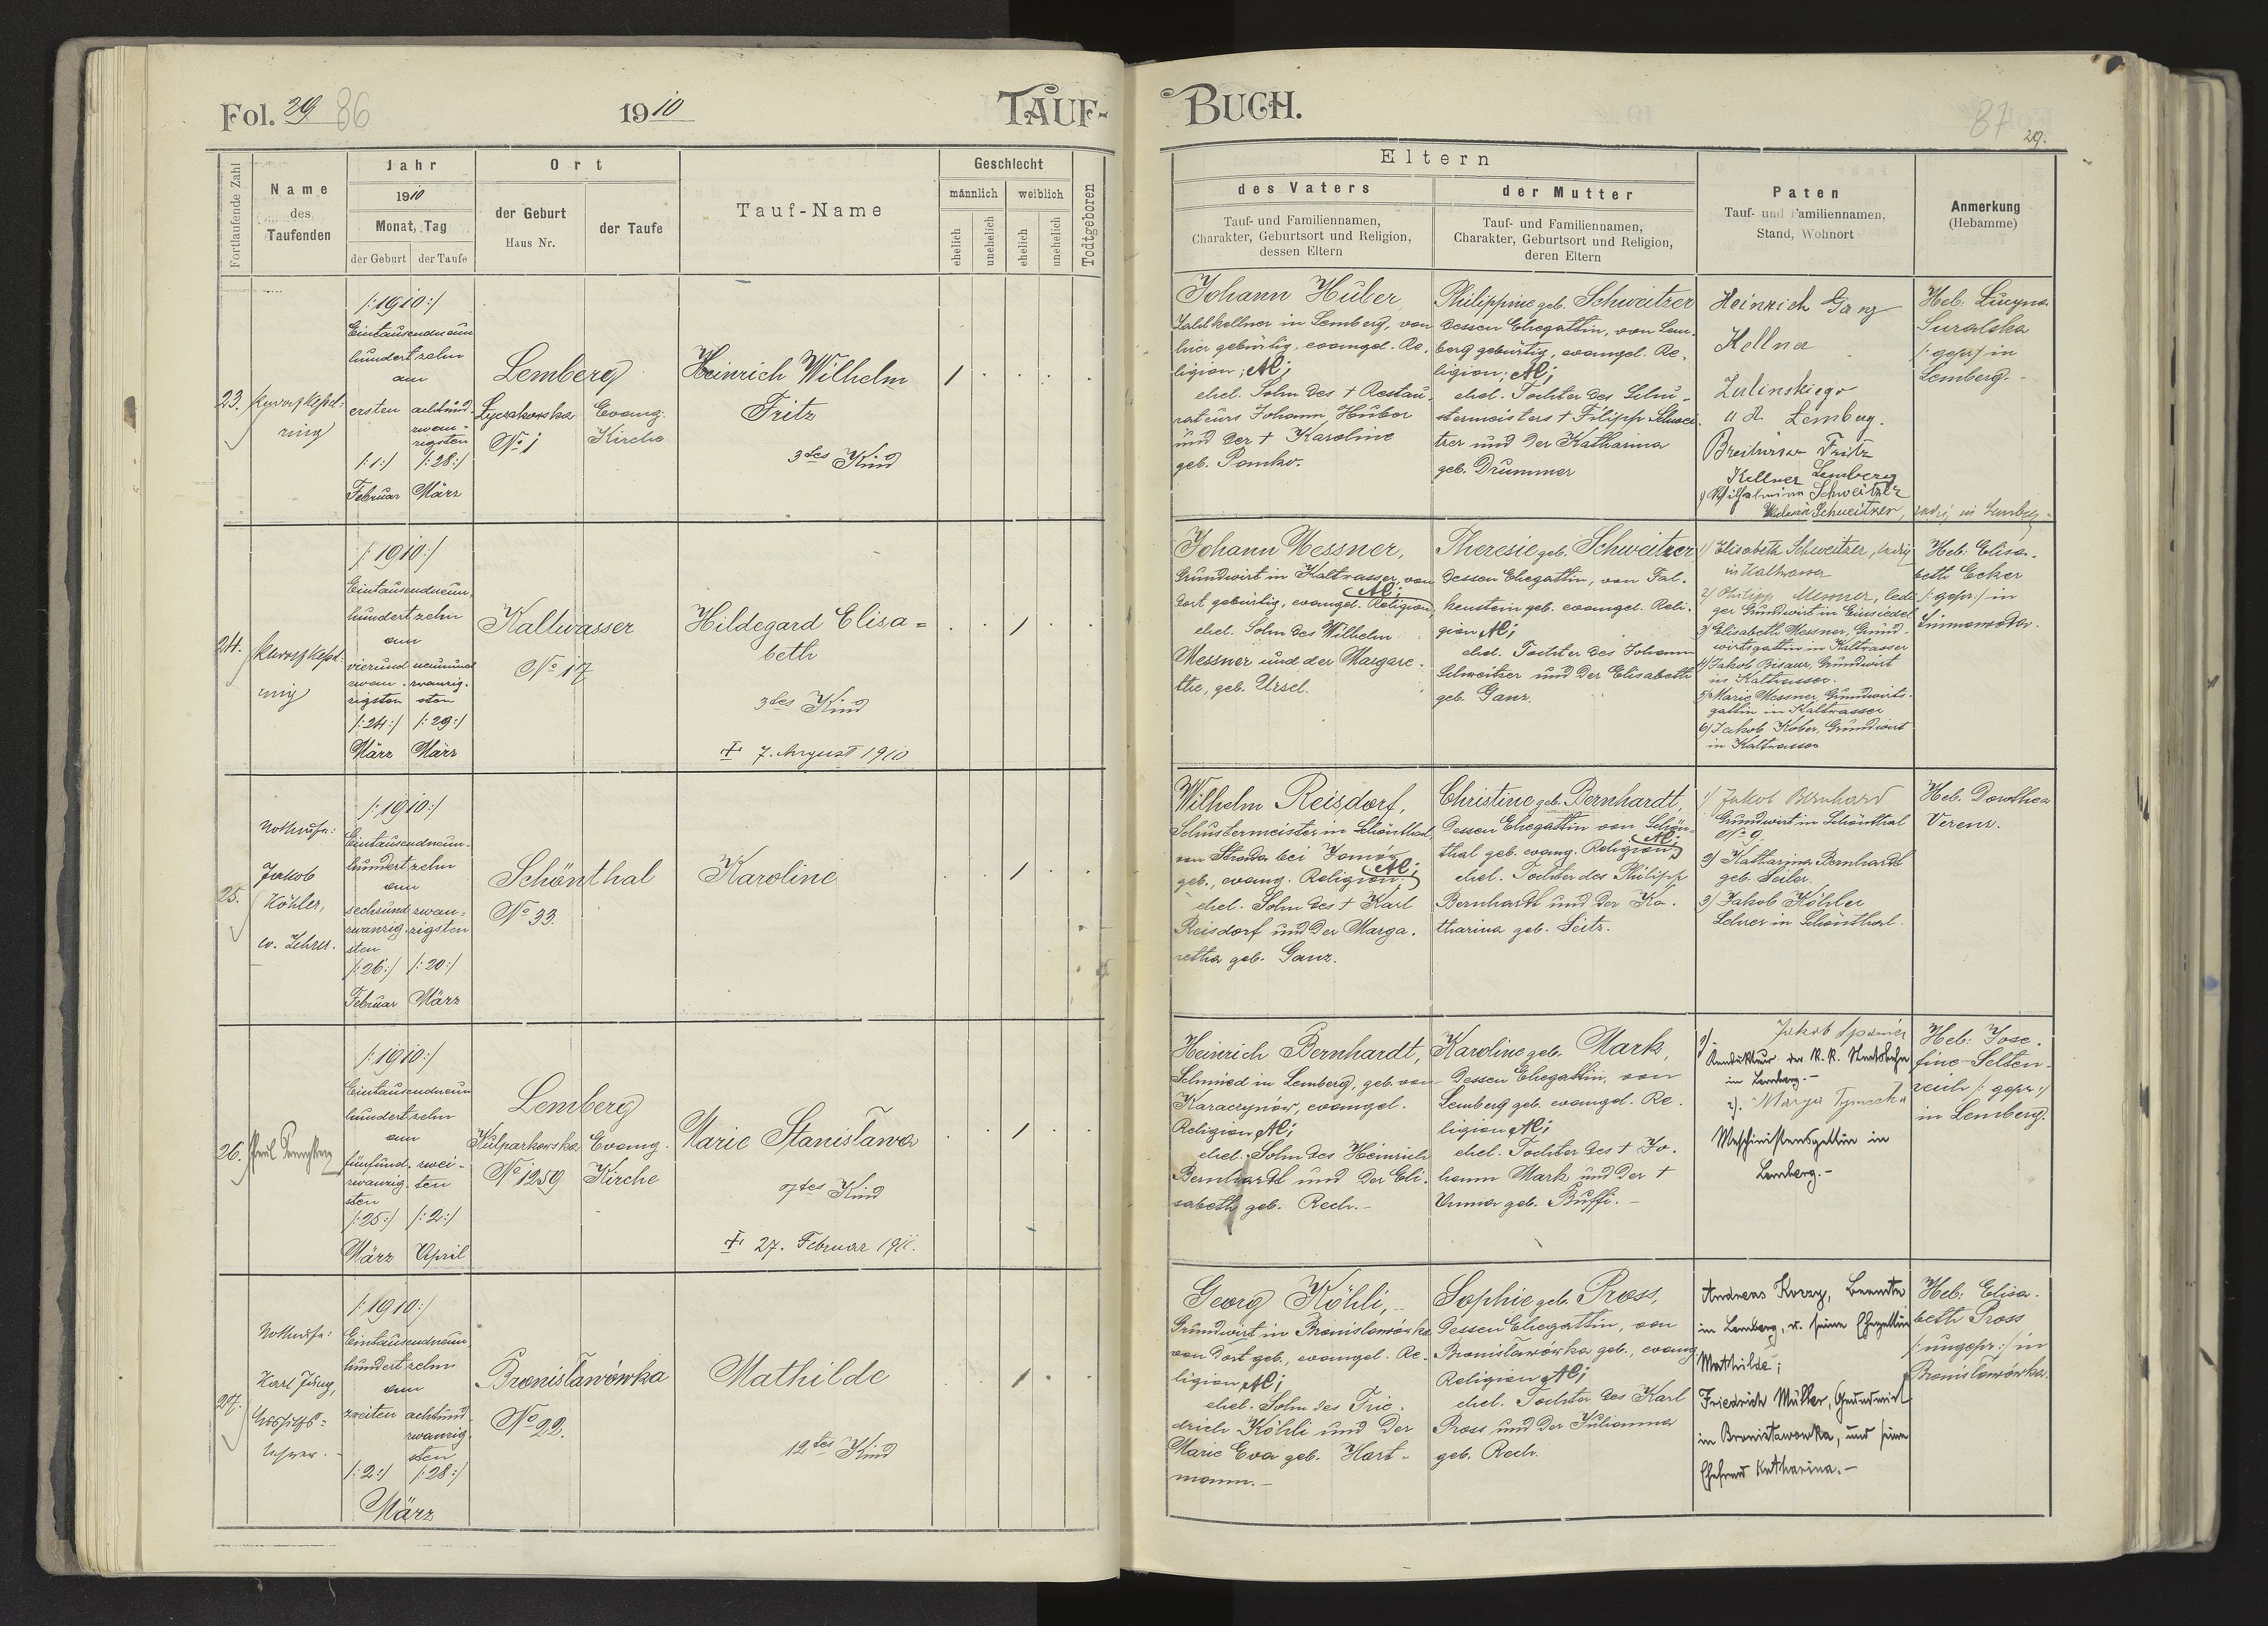 Fol. 29 86
1910
TAUF-
Fortlaufende Zahl
Name
des
Taufenden
Jahr
1910
Monat, Tag
der Geburt
der Taufe
Ort
der Geburt
Haus Nr.
der Taufe
Tauf-Name
Geschlecht
männlich
weiblich
ehelich
unehelich
ehelich
unehelich
Todtgeboren
23.
/:1910:/
Eintausendneun
hundertzehn
am
ersten
achtund
zwan-
zigsten
/:1:/
/:28:/
Februar
März
Lemberg
Lyczakowska
No 1
Evang.
Kirche
Heinrich Wilhelm
Fritz
3tes Kind
1
24.
/:1910:/
Eintausendneun
hundertzehn
am
vierund
zwan-
zigsten
neunund
zwanzig-
sten
/:24:/
/:29:/
März
März
Kaltwasser
No 17
Hildegard Elisa=
beth
3tes Kind
7. August 1910
1
25.
Nothtaufe:
Jakob
Köhler,
ev. Lehrer.
/:1910:/
Eintausendneun-
hundertzehn
am
sechsund
zwanzig-
sten
zwan-
zigsten
/:26:/
/:20:/
Februar
März
Schönthal
No 33.
Karoline
1
26.
/:1910:/
Eintausendneun
hundertzehn
am
fünfund-
zwanzig-
sten
zwei-
ten
/:25:/
/:2:/
März
April
Lemberg
Kulparkowska
No 1259
Evang.
Kirche
Marie Stanisława
7tes Kind
27. Februar 1911.
1
27.
Nothtaufe:
Karl Jung,
Aushilfs=
lehrer.
/:1910:/
Eintausendneun
hundertzehn
am
zweiten
achtund
zwanzig-
sten
/:2:/
/:28:/
März
Bronisławówka
No 22.
Mathilde
12tes Kind
1
BUCH.
87
29.
Eltern
des Vaters
Tauf- und Familiennamen,
Charakter, Geburtsort und Religion,
dessen Eltern
der Mutter
Tauf- und Familiennamen,
Charakter, Geburtsort und Religion,
deren Eltern
Paten
Tauf- und Familiennamen,
Stand, Wohnort
Anmerkung
(Hebamme)
Johann Huber
Zahlkellner in Lemberg, von
hier gebürtig, evangel. Re-
ligion; AC;
ehel. Sohn des † Restau-
rateurs Johann Huber
und der † Karoline
geb. Pomko.
Philippine geb. Schweitzer
dessen Ehegattin, von Lem-
berg gebürtig, evangel. Re-
ligion; AC;
ehel. Tochter des Schu-
stermeisters † Filipp Schwei-
tzer und der Katharina
geb. Drummer
Heinrich Ganz
Kellner
Zulinskiego
Lemberg.
Fritz
Kellner Lemberg
Wilhelmine Schweitzer
Schweitzer, ledig in Lemberg.
Heb: Lucyna
Suralska
/:gepr:/ in
Lemberg.-
Johann Messner,
Grundwirt in Kaltwasser, von
AC;
dort gebürtig, evangel. Religion,
ehel. Sohn des Wilhelm
Messner und der Margare-
the, geb. Ursel.
Theresie geb. Schweitzer
dessen Ehegattin, von Fal-
kenstein geb. evangel. Reli-
gion AC;
ehel. Tochter des Johann
Schweitzer und der Elisabeth
geb. Ganz.
1) Elisabeth Schweitzer, ledig
in Kaltwasser
2) Philipp Messner, ledi
ger Grundwirt in Einsiedel
3) Elisabeth Messner, Grund-
wirtsgattin in Kaltwasser
4) Jakob Bisanz, Grundwirt
in Kaltwasser.
5) Marie Messner, Grundwirts-
gattin in Kaltwasser
6) Jakob Kober, Grundwirt
in Kaltwasser
Heb: Elisa-
beth Ecker
/:gepr:/ in
Wilhelm Reisdorf,
Schustermeister in Schönthal,
von Stradz bei Janów
AC;
geb., evang. Religion;
ehel. Sohn des † Karl
Reisdorf und der Marga-
retha geb. Ganz.
Christine geb. Bernhardt,
dessen Ehegattin von Schön-
AC;
thal geb. evang. Religion;
ehel. Tochter des Philipp
Bernhardt und der Ka-
tharina geb. Seitz.
1) Jakob Bernhard
Grundwirt in Schönthal
No 9
2) Katharina Bernhardt
geb. Seiler.
3) Jakob Köhler
Lehrer in Schönthal.
Heb. Dorothea
Verenz.
Heinrich Bernhardt,
Schmied in Lemberg, geb. von
Karaczynów, evangel.
Religion AC;
ehel. Sohn des Heinrich
Bernhardt und der Eli-
sabeth geb. Rech.-
Karoline geb. Mark,
dessen Ehegattin, von
Lemberg geb. evangel. Re-
ligion AC;
ehel. Tochter des † Jo-
hann Mark und der †
Anna geb. Buffi.-
1) Jakob Spanier
Kondukteur der k.k. Staatsbahn
in Lemberg.-
2). Marya Tymecka
Maschinistensgattin in
Lemberg.-
Heb: Jose-
fine Selten-
reich /:gepr:/
in Lemberg.
Georg Köhli,
Grundwirt in Bronisławówka
von dort geb., evangel. Re-
ligion AC;
ehel. Sohn des Frie-
drich Köhli und der
Marie Eva geb. Hart-
mann.-
Sophie geb. Pross,
dessen Ehegattin, von
Bronisławówka geb., evang.
Religion AC;
ehel. Tochter des Karl
Pross und der Julianna
geb. Rech.
Andreas Koczy, Beamte
in Lemberg, u. seine Ehegattin
Mathilde;
Friedrich Müller, Grundwirt
in Bronisławowka, und seine
Ehefrau Katharina.-
Heb: Elisa-
beth Pross
/:ungepr:/ in
Bronisławówka.